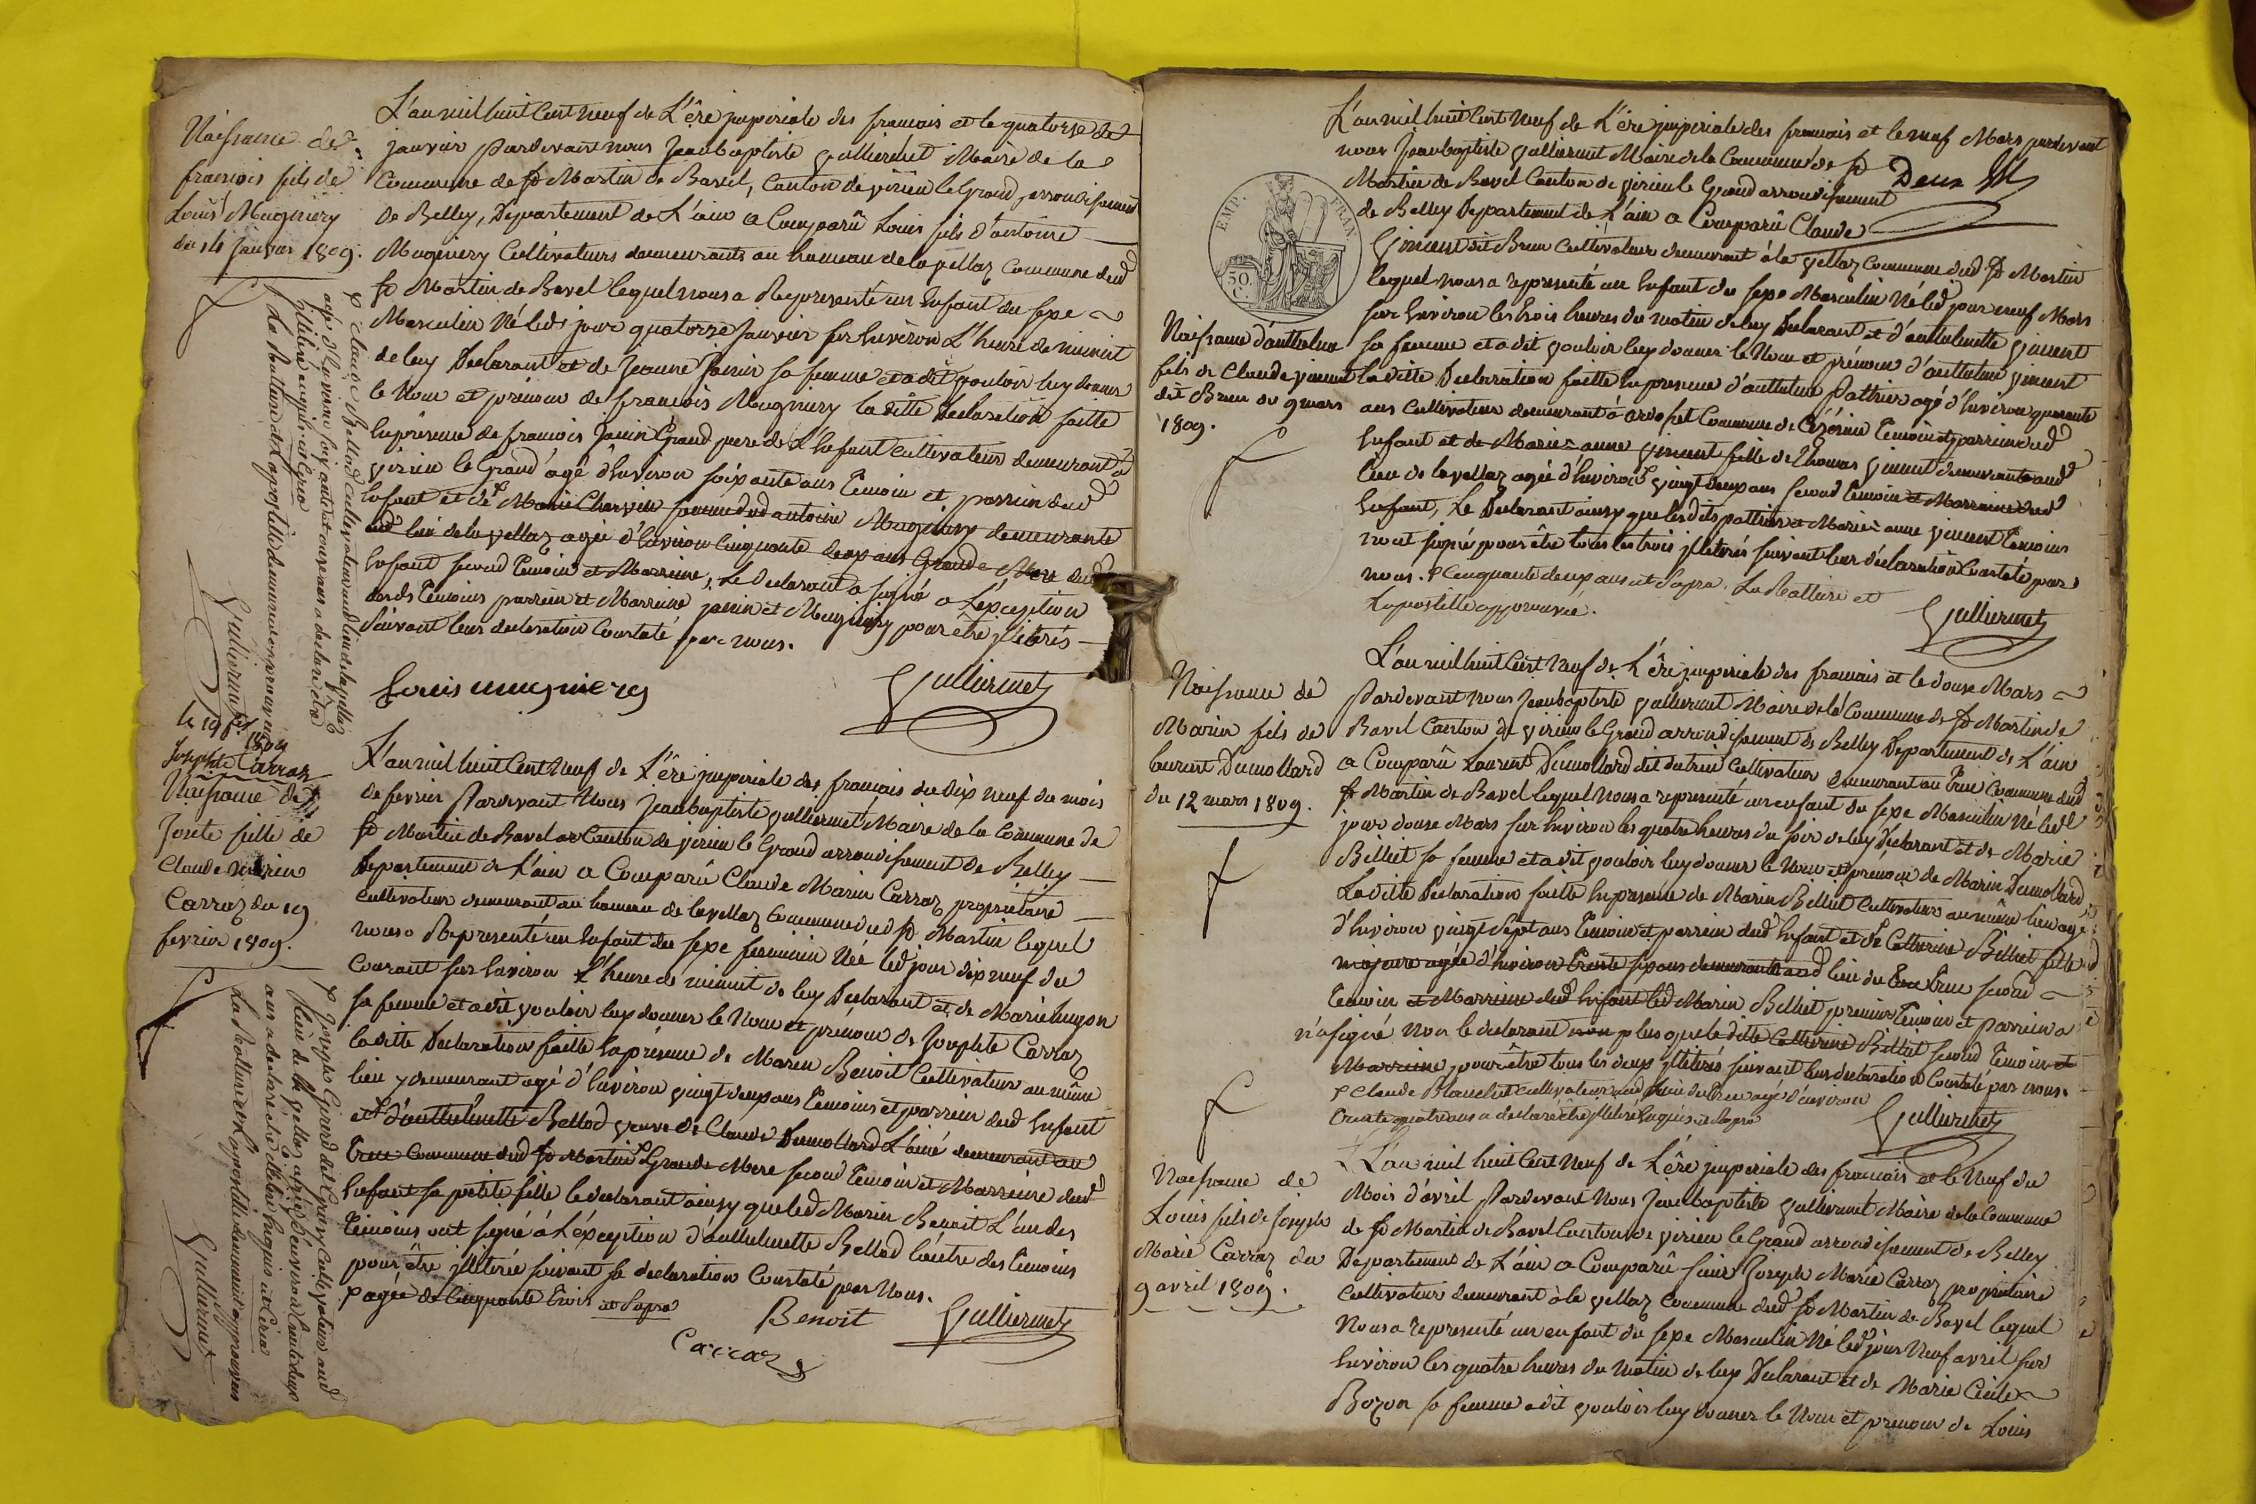 Naissance de
francois fils de
Louis Mugniery
du 14 janvier 1809.
L'an mil huit Cent neuf de L'ère jmperiale des francais et le quatorze de
janvier pardevant nous Jeanbaptiste gulliermet Maire de la
Commune de St Martin de Bavel, Canton de virieu le Grand, arrondisement
de Belley, Departement de L'ain a Comparû Louis fils d'antoine
Mugniery Cultivateurs demeurants au hameau de lavellaz Commune dud
St Martin de Bavel lequel nous a Representé un Enfant du sexe
Masculin Né led jour quatorze janvier sur Environ L'heure de minuit
de luy Declarant et de Jeanne Janin sa femme et a dit vouloir luy donner
le Nom et prénom de francois Mugniery la ditte Declaration faitte
En présence de francois Janin Grand pere de L'Enfant Cultivateur demeurant à
virieu le Grand agé d'Environ soixante ans Temoin et parrein dud
Enfant et de Marie Charvin femme dud antoine Mugniery demeurante
aud lieu de la vellaz agée d'Environ Cinquante deux ans Grande Mere dud
Enfant second Temoin et Marreine, Le Declarant a signé a L'éxception
desds Temoins parrein et Marreine janin et Mugniery pour être jlliterés
suivant leur declaration Constaté par nous.
Louis mugniery
Gulliermet
claude Bellod cultivateur aud lieu de lavellaz
agé d'Environ soixante et onze ans a declaré être
jllitéré enquis et Cerca
La Ratture et L'apostille demeurent approuvées
Gulliermet
le 19 fr 1809
Josephte Carraz
Naissance de
Josete fille de
Claude marin
Carraz du 19
fevrier 1809.
L'an mil huit Cent Neuf de L'ère jmperiale des francais du Dix neuf du mois
de fevrier Pardevant Nous Jeanbaptiste gulliermet Maire de la Commune de
St Martin de Bavel Canton de virieu le Grand arrondisement de Belley
Departement de L'ain a Comparû Claude Marin Carraz propriétaire
Cultivateur demeurant au hameau de lavellaz Commune dud St Martin lequel
nous a Representé un Enfant du sexe feminin Née led jour dix neuf du
Courant sur Environ L'heure de minuit de luy Declarant et de Marie hugon
sa femme et a dit vouloir luy donner le Nom et prénom de Josephte Carraz
la ditte Declaration faitte En présence de Marin Benoit Cultivateur au même
lieu y demeurant agé d'Environ vingt deux ans Temoins et parrein dud Enfant
et d'anthelmette Bellod veuve de Claude Dumollard L'ainé demeurant au
Truc Commune dud St Martin Grande Mere second Temoin et Marreine dud
Enfant sa petite fille le declarant ainsy que led Marin Benoit L'un des
Temoins ont signé à L'éxception d'anthelmette Bellod L'autre des Temoins
pour être jlliterée suivant sa declaration Constaté par Nous.
agée de Cinquante trois et Supra
Benoit
Gulliermet
Carraz
Joseph Girard dit Gravy Cultivateur aud
lieu de la vellaz agé d'environ trente deux
ans a declaré être jlliteré Enquis et Cerca
La Ratture et L'apostille demeurent approuvées
Gulliermet
Deux M
EMP. FRAN.
50 C.
L'an mil huit Cent Neuf de L'ère jmperiale des francais et le neuf Mars pardevant
nous Jeanbaptiste gulliermet Maire de la Commune de St
Martin de Bavel Canton de virieu le Grand arrondisement
de Belley Departement de L'ain a Comparû Claude
Vincent dit Brun Cultivateur demeurant à la vellaz Commune dud St Martin
lequel nous a representé un Enfant du sexe Masculin Né led jour neuf Mars
sur Environ les trois heures du matin de luy Declarant et d'anthelmette vincent
sa femme et a dit vouloir luy donner le Nom et prénom d'anthelme vincent
la ditte Declaration faitte En presence d'anthelme Pathier agé d'Environ quarante
ans Cultivateur demeurant à Commune de Temoin et parrein dud
Enfant et de Marie-anne vincent fille de thomas vincent demeurante aud
lieu de la vellaz agée d'Environ vingt deux ans second Temoin et Marraine dud
Enfant, Le Declarant ainsy que lesdits pathier et Marie-anne vincent Temoins
n'ont signé pour être tous les trois jlliterés suivant leur déclaration Constaté par
nous. Cinquante deux ans et Supra. La Ratture et
Lapostille approuvée.
Gulliermet
Naissance d'anthelme
fils de Claude vincent
dit Brun du 9 mars
1809.
Naissance de
Marin fils de
laurent Dumollard
du 12 mars 1809.
L'an mil huit Cent Neuf de L'ère jmperiale des francais et le douse Mars
Pardevant nous Jeanbaptiste gulliermet Maire de la Commune de St Martin de
Bavel Canton de virieu le Grand arrondisement de Belley Departement de L'ain
a Comparû Laurent Dumollard dit Cultivateur demeurant au Truc Commune dud
St Martin de Bavel lequel Nous a representé un enfant du sexe Masculin Né led
jour douse Mars sur Environ les quatre heures du soir de luy Declarant et de Marie
Billiet sa femme et a dit vouloir luy donner le Nom et prénom de Marin Dumollard
La ditte Declaration faitte En presence de Marin Billiet Cultivateur au même lieu agé
d'Environ vingt sept ans Temoin et parrein dud Enfant et de Catherine Billiet fille
majeure agée d'Environ trente six ans demeurante aud lieu du Truc second
Temoin et Marreine dud Enfant led Marin Billiet premier Temoin et Parrein a
n'a signé non le declarant non plus que la ditte Catherine Billiet second Temoin et
Marreine, pour être tous les deux jlliterés suivant leur declaration Constaté par nous.
Claude Blanchet cultivateur aud lieu du truc agé d'environ
trente quatre ans a declaré être jlliteré Enquis et Supra
Gulliermet
Naissance de
Louis fils de joseph
Marie Carraz du
9 avril 1809.
L'an mil huit Cent Neuf de L'ère jmperiale des francais et le Neuf du
Mois d'avril Pardevant Nous Jeanbaptiste gulliermet Maire de la Commune
de St Martin de Bavel Canton de virieu le Grand arrondisement de Belley
Departement de L'ain a Comparû sieur Joseph Marie Carraz propriétaire
Cultivateur demeurant à la vellaz Commune dud St Martin de Bavel lequel
Nous a representé un enfant du sexe Masculin Né led jour Neuf avril sur
Environ les quatre heures du matin de luy Declarant et de Marie Cécile
Bozon sa femme a dit vouloir luy donner le Nom et prenom de Louis